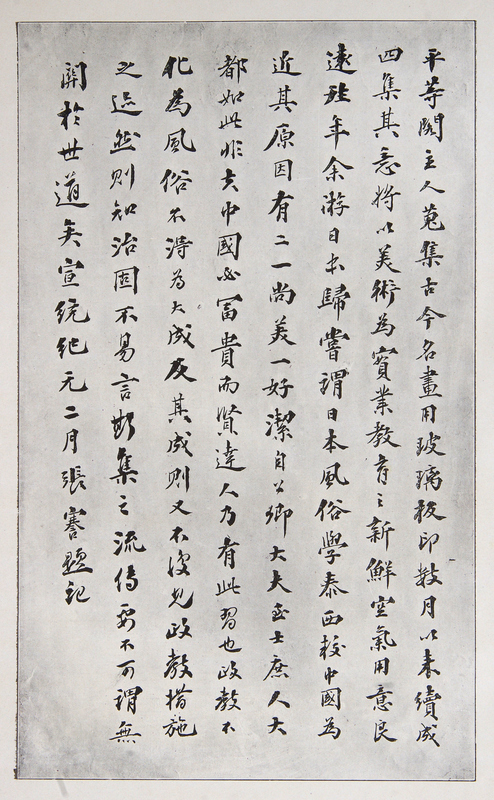 平等閣主人蒐集古今名畫用玻璃板印數月以來續成
四集其意將以美術為實業教育之新鮮空氣用意良
遠往年余游日本歸嘗謂日本風俗學泰西較中國為
近其原因有二一尚美一好潔自公卿大夫至士庶人大
都如此非夫中國必富貴而賢達人乃有此習也政教不
化為風俗不得為大成及其成則又不復見政教措施
之迹然則知治固不易言斯集之流傳要不可謂無
關於世道矣宣統紀元二月張謇題記